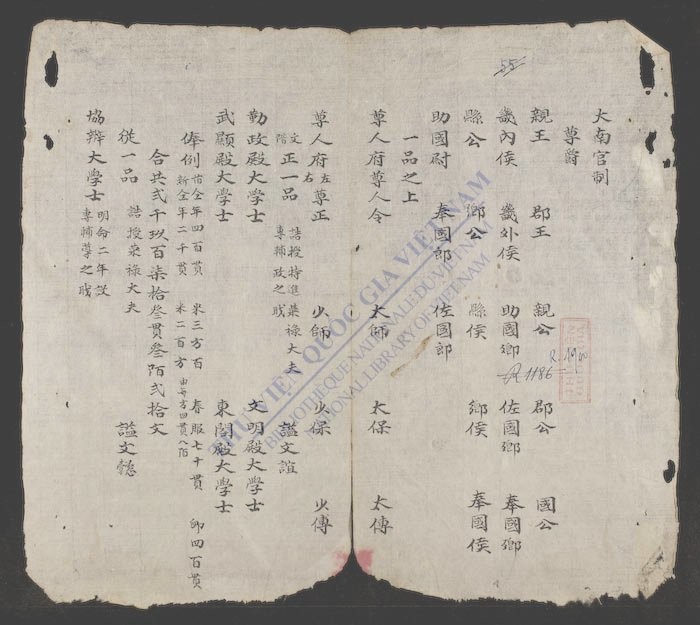 大南官制
尊爵
親王 郡王 親公 郡公 國公
畿內侯 畿外侯 助國卿 佐國卿 奉國卿
縣公 鄉公 縣侯 鄉侯 奉國侯
助國尉 奉國郎 佐國郎
一品之上
尊人府尊人令 太師 太保 太傅
尊人府左右尊正 少師 少保 少傅
文階正一品 誥授特進榮祿大夫 專輔政之职 謚文誼
勤政殿大學士 文明殿大學士
武顯殿大學士 東閣殿大學士
俸例 全年四百貫 米三方百 春服七十貫
新全年二千貫 米二百方 四百貫
合共貳千玖百柒拾叁貫叁陌貳拾文
從一品 誥授榮祿大夫 謚文懿
協辦大學士 明命二年設
55
R.1186
R.1940
THƯ VIỆN QUỐC GIA VIỆT NAM
BIBLIOTHÈQUE NATIONALE DU VIETNAM
NATIONAL LIBRARY OF VIETNAM